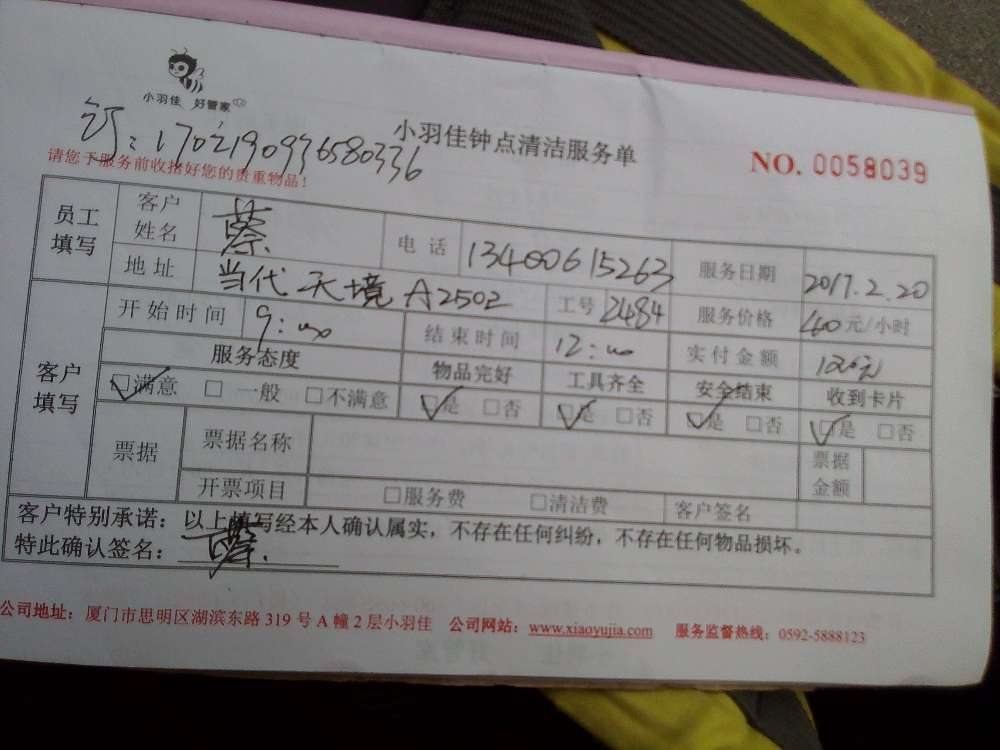 小羽佳 好管家
订:1702190936580336
小羽佳钟点清洁服务单
NO. 0058039
请您于服务前收拾好您的贵重物品!
员工填写 客户姓名 蔡 电话 13400615263 服务日期 2017.2.20
地址 当代天境A2502 工号 2484 服务价格 40元/小时
客户填写 开始时间 9:00 结束时间 12:00 实付金额 120元
服务态度 物品完好 工具齐全 安全结束 收到卡片
☑满意 □一般 □不满意 ☑是 □否 ☑是 □否 ☑是 □否 ☑是 □否
票据 票据名称 票据金额
开票项目 □服务费 □清洁费 客户签名
客户特别承诺:以上填写经本人确认属实,不存在任何纠纷,不存在任何物品损坏。
特此确认签名: 蔡
公司地址:厦门市思明区湖滨东路319号A幢2层小羽佳 公司网站:www.xiaoyujia.com 服务监督热线:0592-5888123